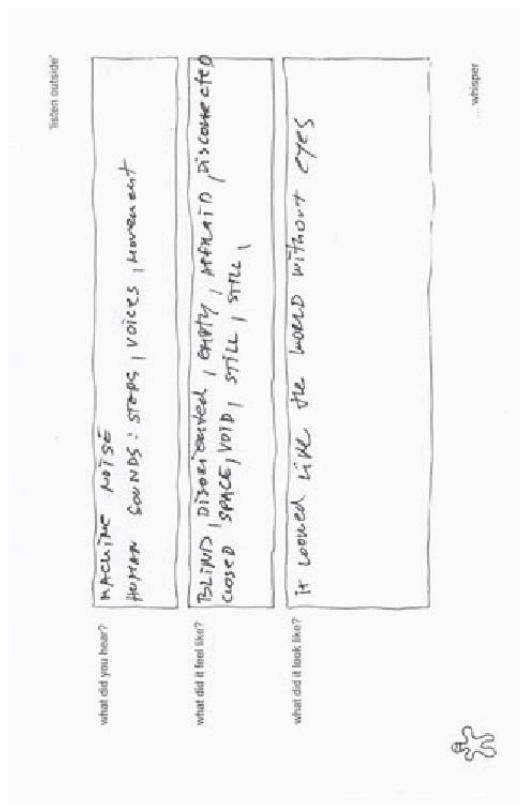 'listen outside'
what did you hear?
MACHINE NOISE
HUMAN SOUNDS: STEPS, VOICES, MOVEMENT
what did it feel like?
BLIND, DISORIENTED, EMPTY, AFRAID, DISCONNECTED
CLOSED SPACE, VOID, STILL, STILL,
what did it look like?
it looked like the WORLD without eyes
... whisper